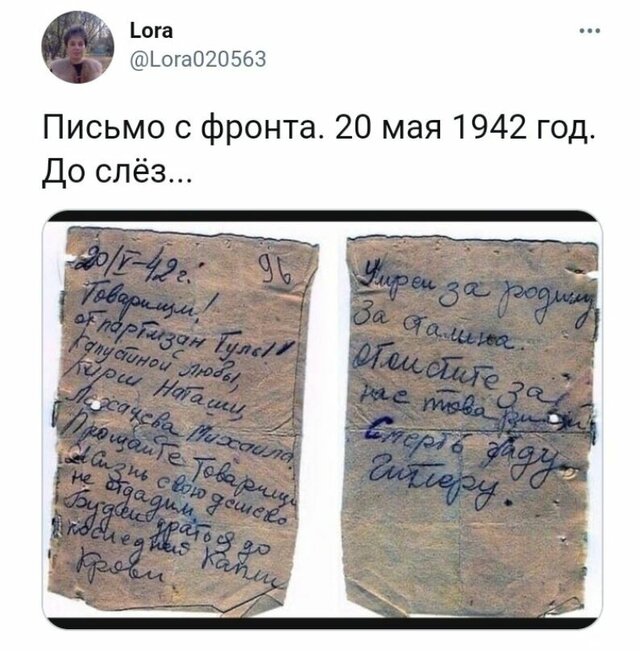 Lora
@Lora020563
Письмо с фронта. 20 мая 1942 год.
До слёз...
20/V-42г.
Товарищи!
от партизан Тулы
Капустиной Любы,
Наташи,
Михаила.
Прощайте Товарищи
Жизнь свою дешево
не отдадим
Будем драться до
последней Капли
Крови
96
за родину
За Сталина.
Отомстите за
нас
Смерть гаду
Гитлеру.